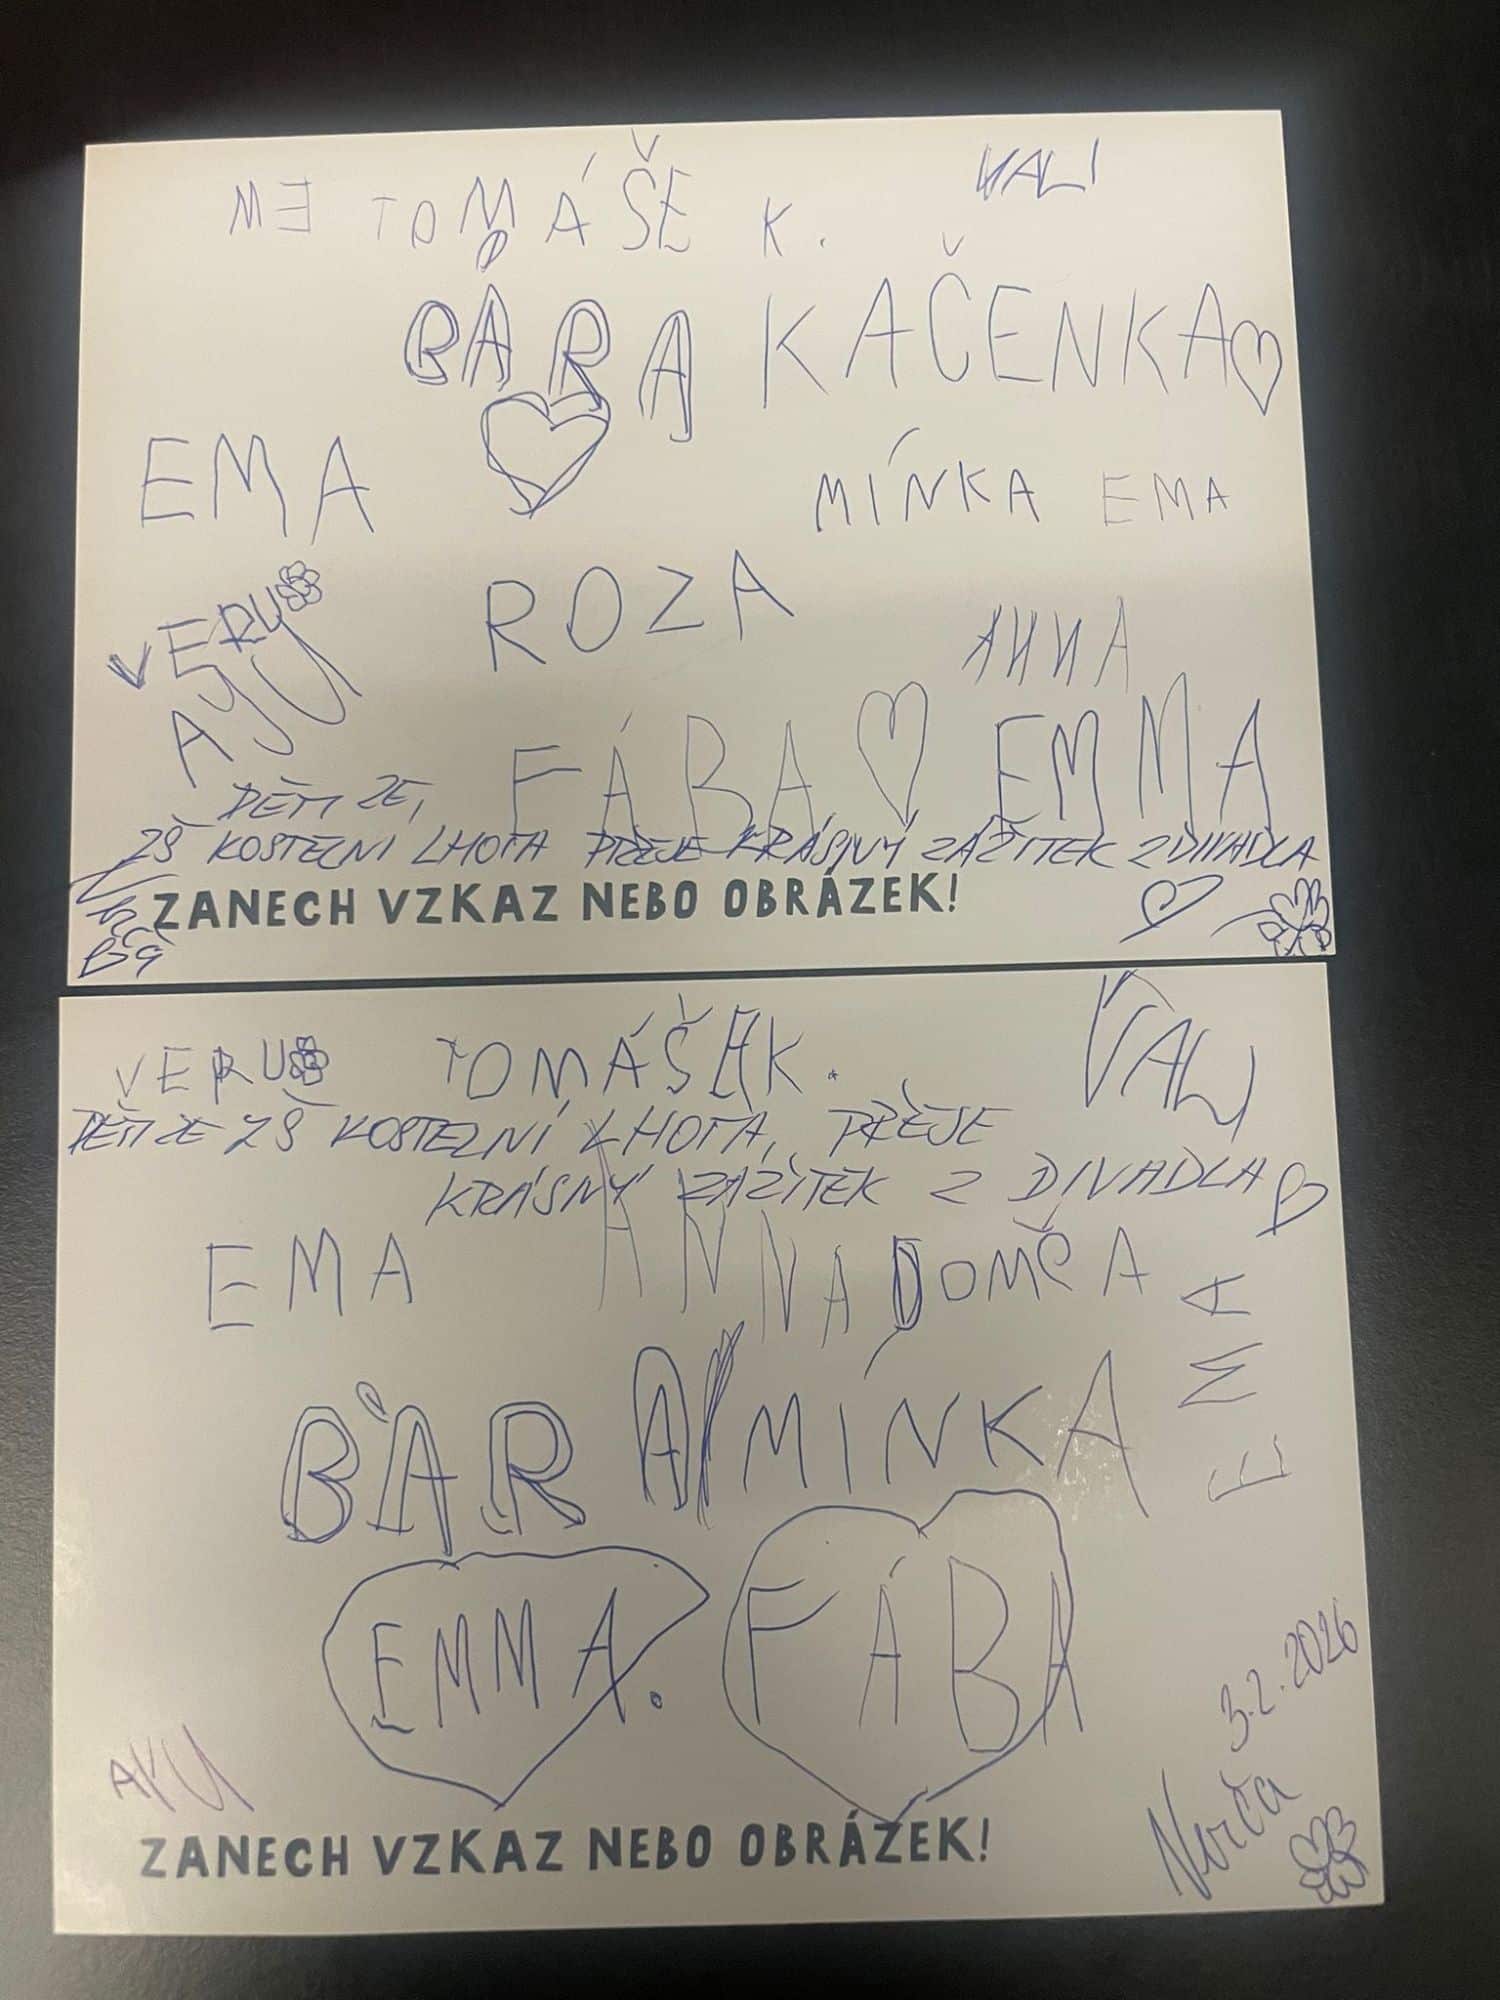 TOMÁŠE K.
VALI
BÁRA KAČENKA
EMA
MÍNKA EMA
VERU
ROZA
ANNA
AYU
FÁBA EMMA
DĚTI ZE,
ZŠ KOSTELNI LHOTA PŘEJE KRÁSNÝ ZÁŽITEK Z DIVADLA
ZANECH VZKAZ NEBO OBRÁZEK!
VERU TOMÁŠEK.
VALI
DĚTI ZE ZŠ KOSTELNÍ LHOTA, PŘEJE
KRÁSNÝ ZÁŽITEK Z DIVADLA
EMA ANNA DOMČA
EMA
BÁRA MÍNKA
EMMA. FÁBA
3.2.2026
ZANECH VZKAZ NEBO OBRÁZEK!